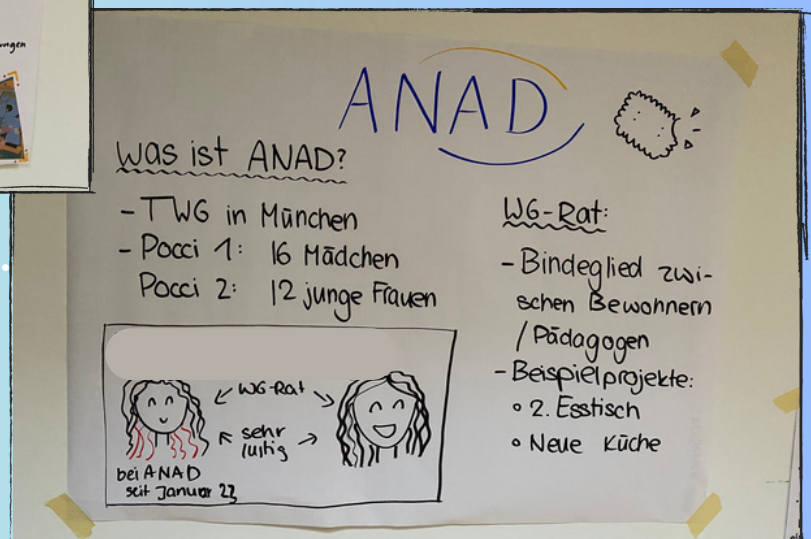 ungen
ANAD
Was ist ANAD?
- TWG in München
- Pocci 1: 16 Mädchen
Pocci 2: 12 junge Frauen
WG-Rat
sehr
lustig
bei ANAD
seit Januar 23
WG-Rat:
- Bindeglied zwi-
schen Bewohnern
/ Pädagogen
- Beispielprojekte:
° 2. Esstisch
° Neue Küche